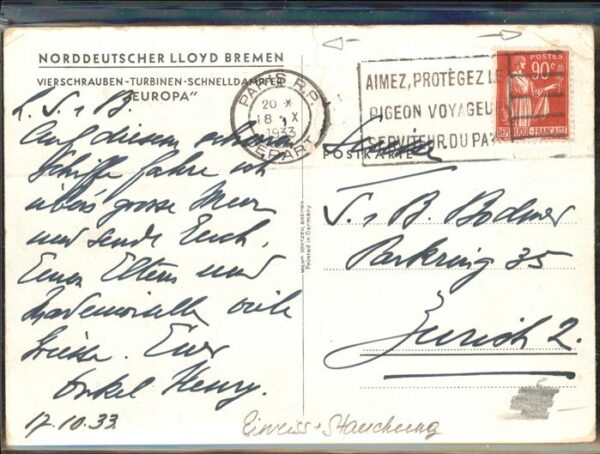 NORDDEUTSCHER LLOYD BREMEN
VIERSCHRAUBEN-TURBINEN-SCHNELLDAMPFER
"EUROPA"
L. S. & B.
Auf diesem schönen
Schiffe fahre ich
übers grosse Meer
und sende Euch,
Euren Eltern und
Mademoiselle viele
Grüsse. Euer
Onkel Henry.
17.10.33.
PARIS R.P.
20 X
18 X
1933
DEPART
AIMEZ, PROTÉGEZ LE
PIGEON VOYAGEU
SERVITEUR DU PA
POSTES
90 c
REPUBLIQUE FRANÇAISE
POSTKARTE
Suisse
S. & B. Bodmer
Parkring 35
Zürich 2.
Printed in Germany
Eiweiss + Stauchung